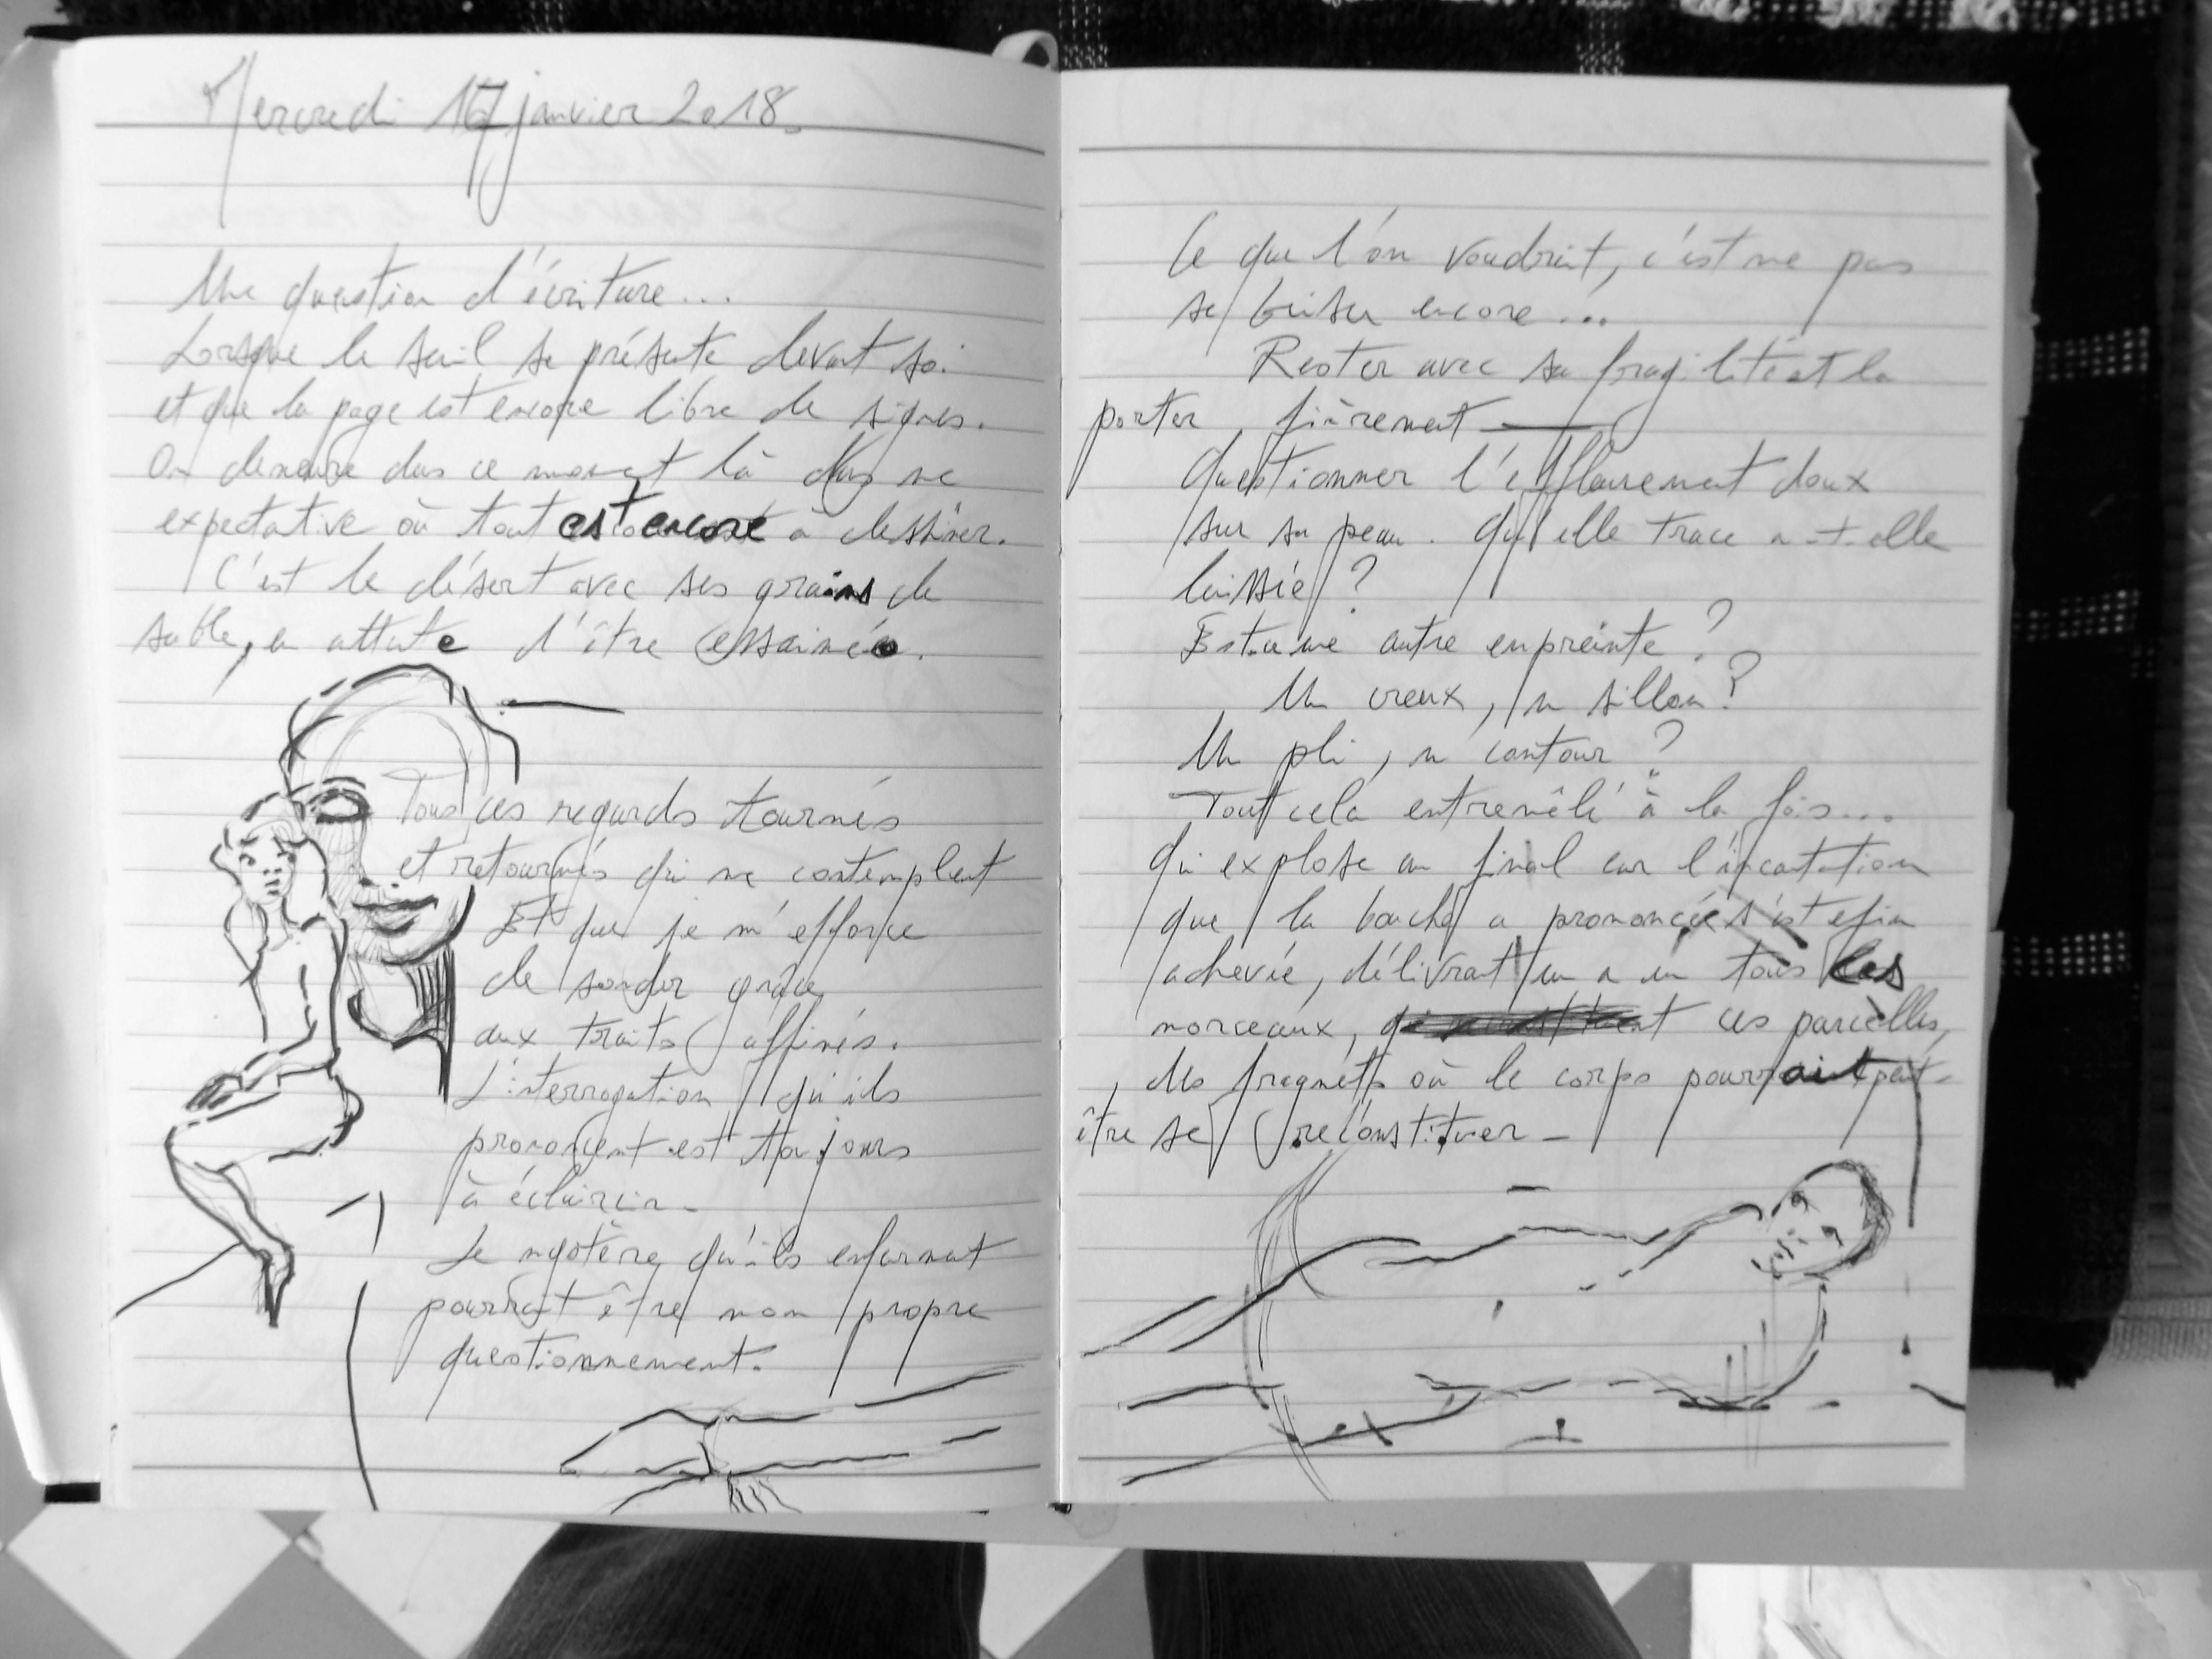 Mercredi 17 janvier 2018.
Une question d'écriture...
Lorsque le seuil se présente devant soi
et que la page est encore libre de signes.
On demeure dans ce moment là dans une
expectative où tout est encore à dessiner.
C'est le désert avec ses grains de
sable, en attente d'être essaimée.
Tous ces regards tournés
et retournés qui me contemplent
Et que je m'efforce
de sonder grâce
aux traits affinés.
L'interrogation qu'ils
prononcent est toujours
à éclaircir _
Le mystère qu'ils enferment
pourrait être mon propre
questionnement.
Ce que l'on voudrait, c'est ne pas
se briser encore ...
Rester avec sa fragilité et la
porter fièrement —
Questionner l'effleurement doux
sur sa peau. Qu'elle trace a-t-elle
laissée ?
Est-ce une autre empreinte ?
Un creux, un sillon ?
Un pli, un contour ?
Tout cela entremêlé à la fois...
qui explose au final car l'incantation
que la bouche a prononcée s'est enfin
achevée, délivrant un a un tous les
morceaux, ces parcelles,
, des fragments où le corps pourrait peut-
être se reconstituer _